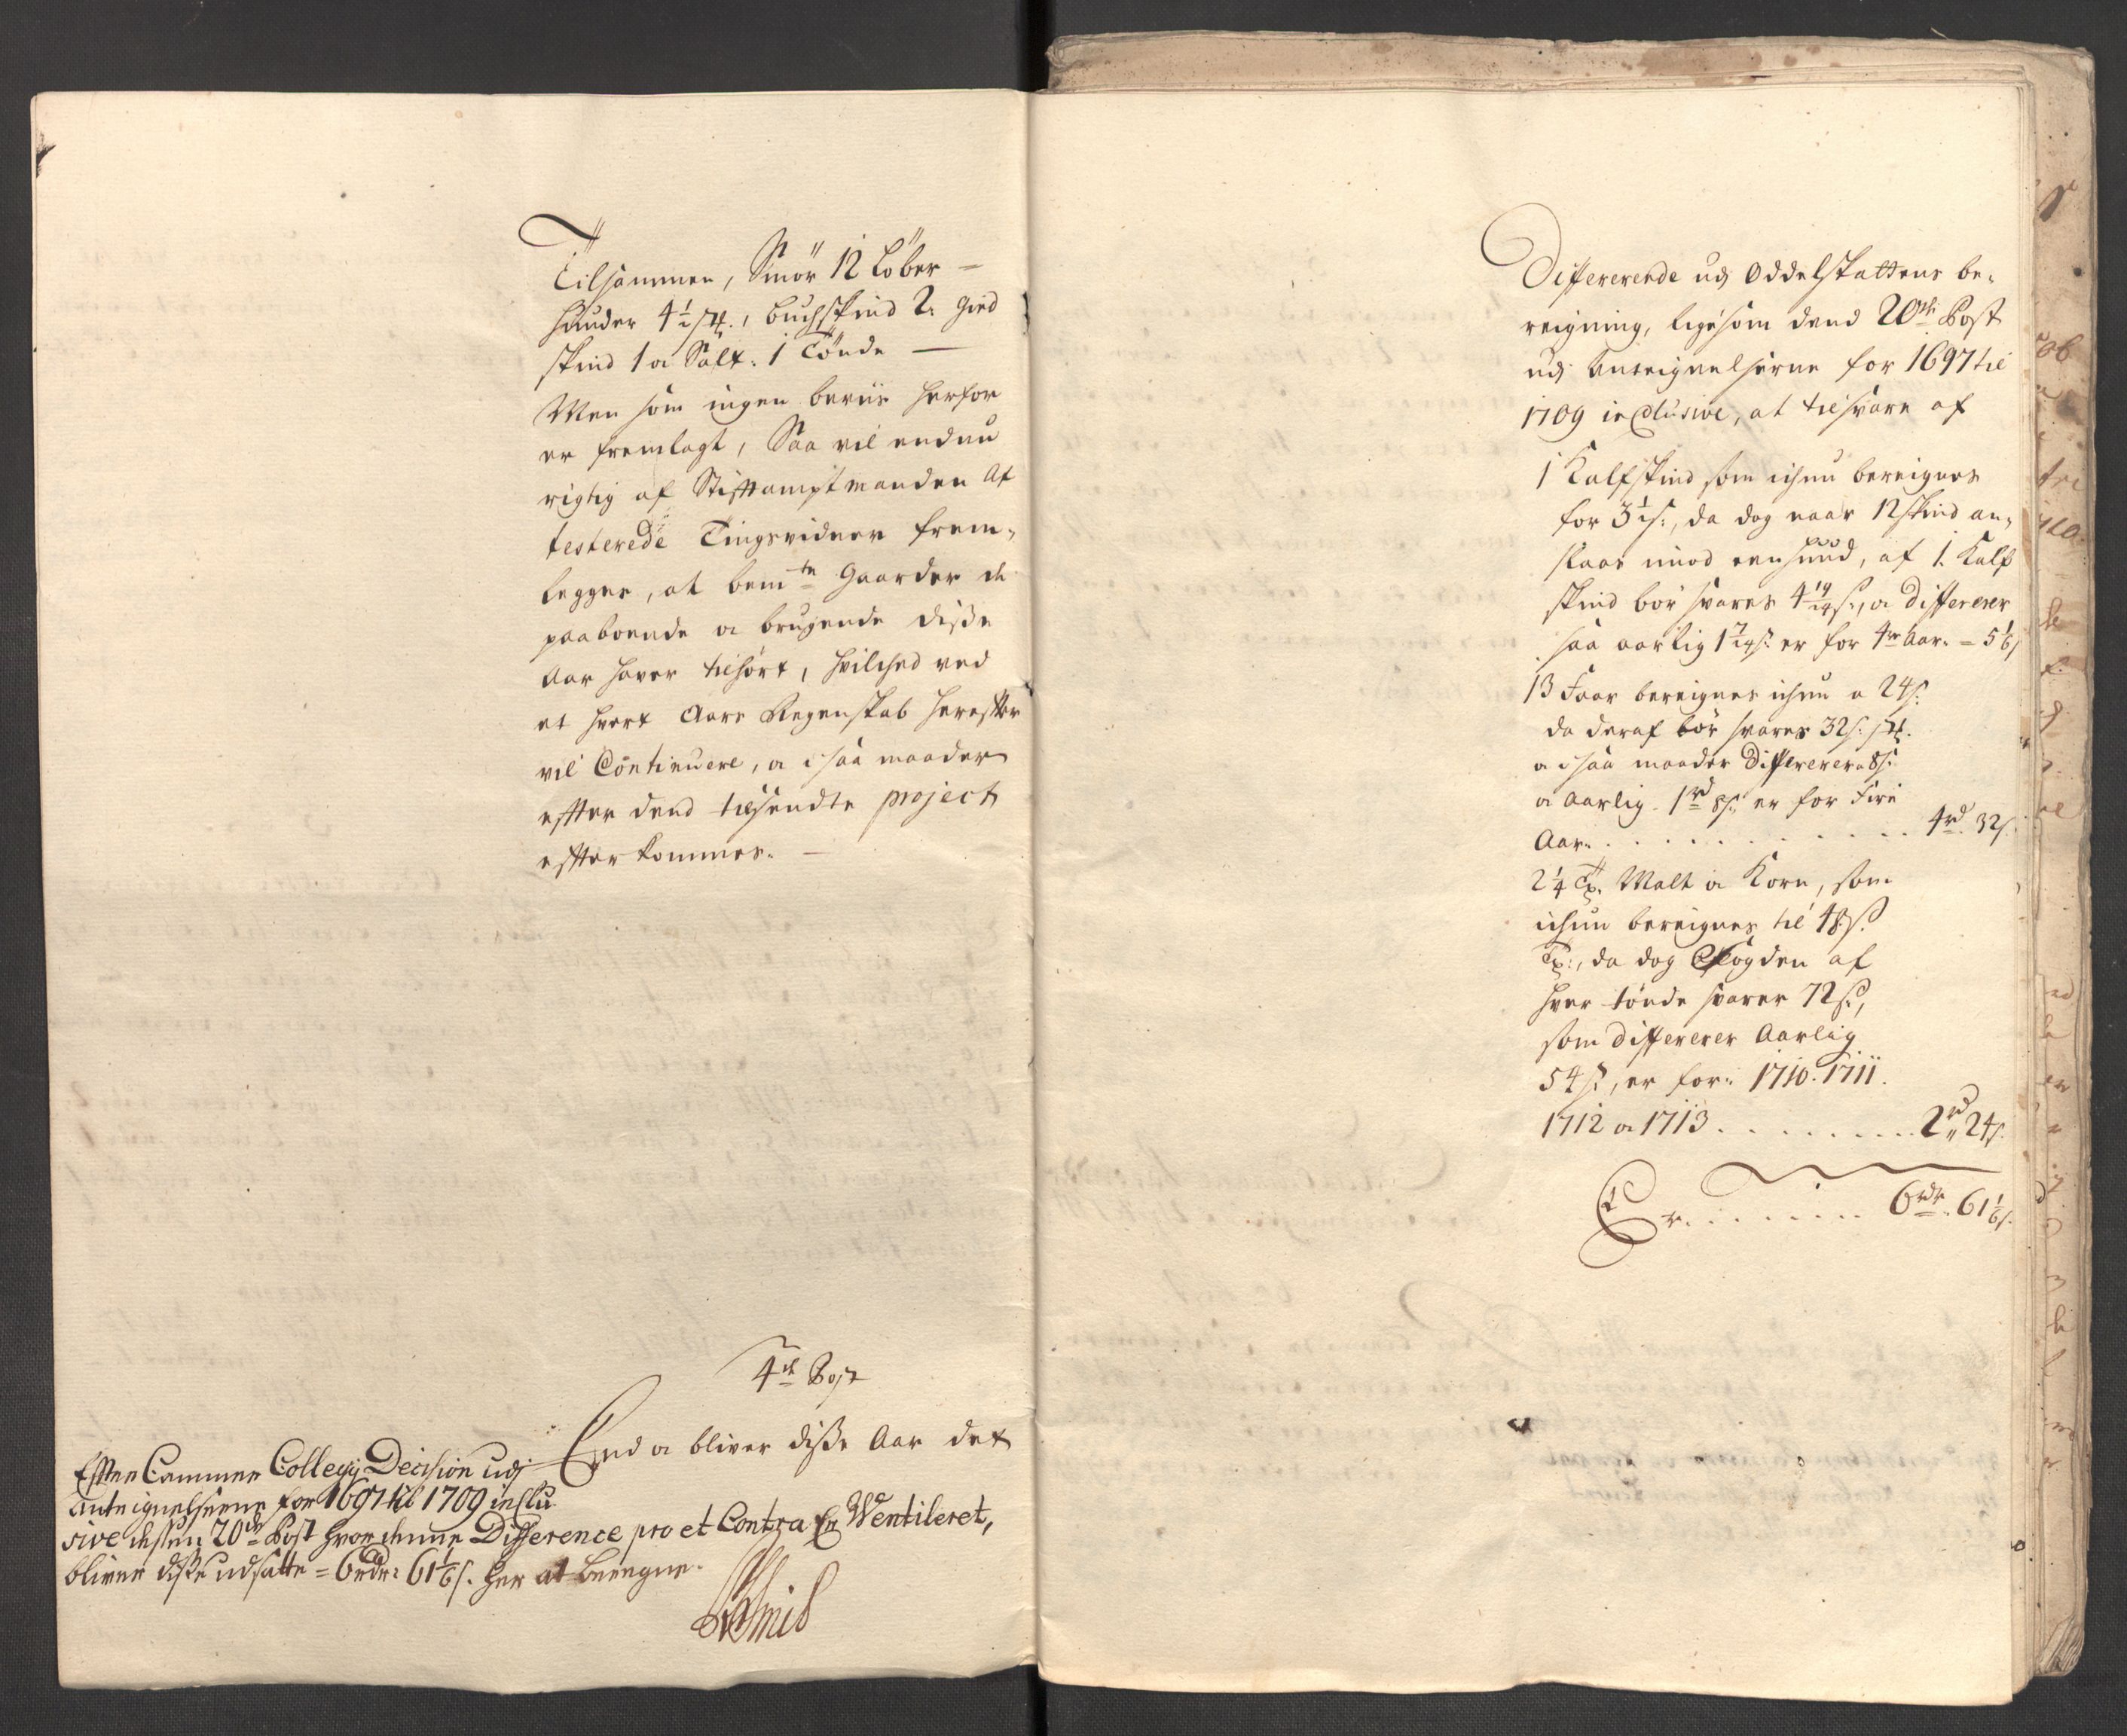 Tilsammen, Smör 12 Löber —
Huuder 4 1/2 st:, buchskind 2: gied
skind 1 a Salt: 1 Tönde —
Men som ingen beviis herfor
er fremlagt, Saa vil endnu
rigtig af Stiftamptmanden At
testerede Tingsvidner frem-
legges, at bemte Gaarder de
paaboende og brugende disse
Aar haver tilhört, hvilched ved
et hvert Aars Regenskab herefter
vil Continuere, og i saa maader
efter dend tilsendte project
efterkommes. —
4de Post
End og bliver disse Aar det
Efter Cammer Collegij Decision udj
Anteignelserne for 1697 til 1709 inclu
sive dessen 20de Post hvor denne Difference pro et Contra er Ventileret,
bliver disse udsatte = 6 rdr: 61 1/6 s. her at bereigne.
Differerende udj Oddelskattens be-
reigning, ligesom dend 20de Post
udj Anteignelserne for 1697 til
1709 inclusive, at tilsvare af
1 Kalfskind som ichun bereignes
for 3 1/2 s:, da dog naar 12 skind an-
slaas imod een huud, af 1. Kalf
skind bör svares 4 19/24 s:, og differerer
saa aarlig 1 7/24 s: er for 4re Aar. = 5 1/6 s
13 Faar bereignes ichun a 24 s:
da deraf bör svares 32 s: st:
og i saa maader Differerer a 8 s:
og Aarlig 1 rd 8 s: er for Fire
Aar. . . . . . . . . . . . 4 rd. 32 s.
2 1/4 Tr. Malt og Korn, som
ichun bereignes til 48 s:
Tr:, da dog Fogden af
hver tönde svarer 72 s:,
som differerer Aarlig
54 s:, er for: 1710. 1711.
1712 og 1713 . . . . . . . . . 2 rd 24 s.
Er. . . . . . . . 6 rdr. 61 1/6 s.